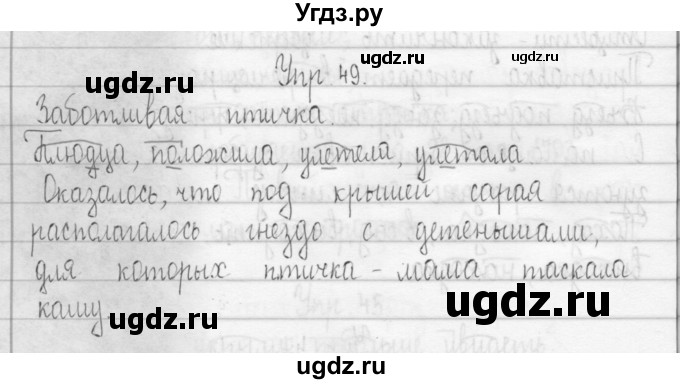 Угдз.ру
ugdz.ru ugdz.ru
Упр 49.
Заботливая птичка
Плюдца, положила, улетела, улетала
Оказалось, что под крышей сарая
располагалось гнездо с детенышами,
для которых птичка - мама таскала
кашу
ugdz.ru ugdz.ru
ugdz.ru ugdz.ru
ugdz.ru